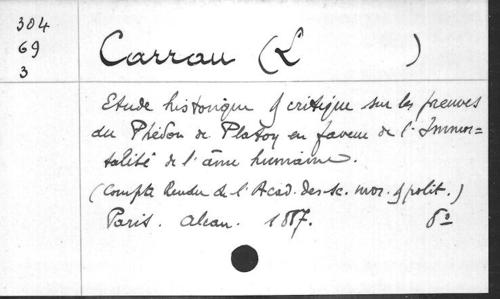 304
69
3
Carrau (L )
Etude historique & critique sur les preuves
du Phédon de Platon en faveur de l'Immor=
talité de l'âme humaine.
(Compte Rendu de l'Acad. des Sc. mor. & polit.)
Paris. Alcan. 1887. 8º